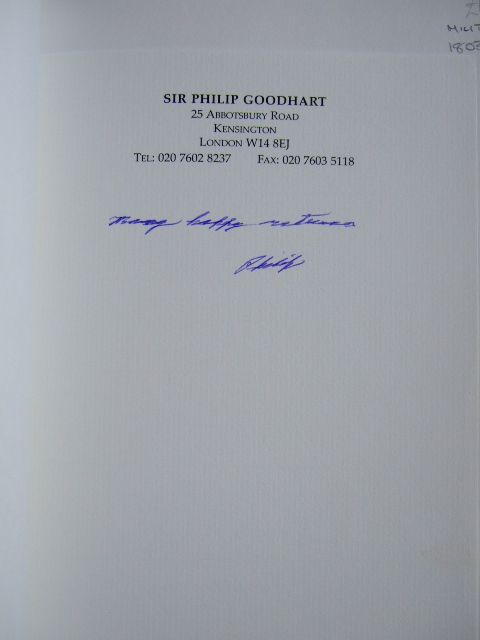 SIR PHILIP GOODHART
25 ABBOTSBURY ROAD
KENSINGTON
LONDON W14 8EJ
TEL: 020 7602 8237 FAX: 020 7603 5118
many happy returns
Philip